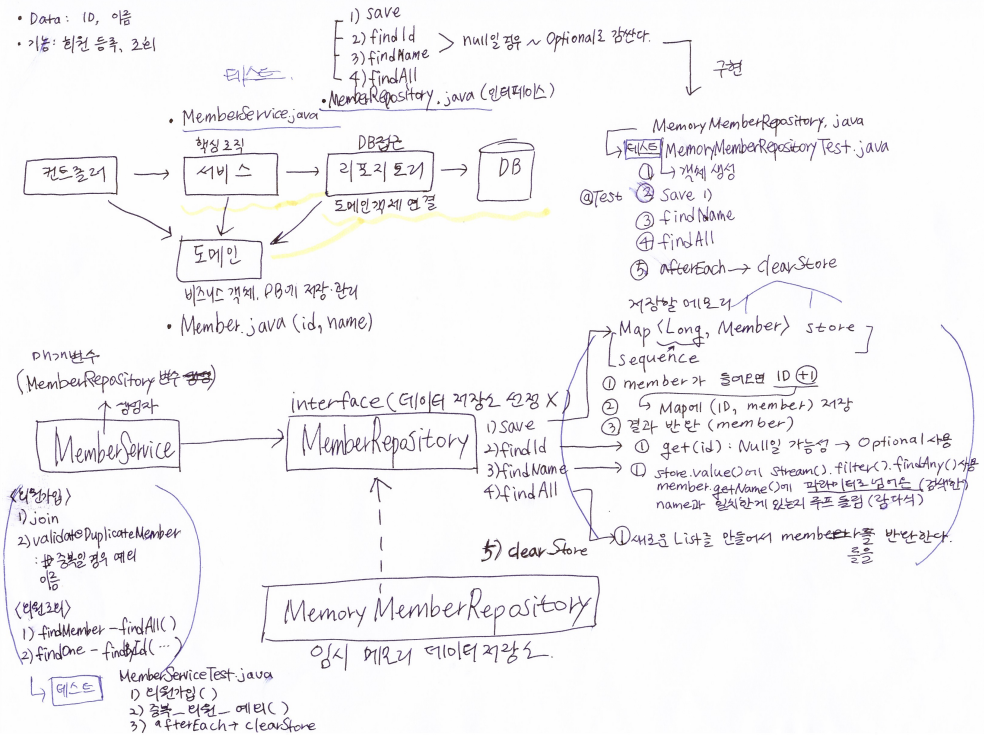 • Data: ID, 이름
• 기능: 회원 등록, 조회
1) save
2) findId
3) findName
4) findAll
null일 경우 ~ Optional로 감싼다.
구현
테스트
• MemberRepository.java (인터페이스)
• MemberService.java
핵심로직
DB접근
컨트롤러
서비스
리포지토리
DB
도메인객체 연결
도메인
비즈니스 객체, DB에 저장·관리
• Member.java (id, name)
MemoryMemberRepository.java
테스트 MemoryMemberRepositoryTest.java
① 객체 생성
@Test ② save 1)
③ findName
④ findAll
⑤ afterEach → clearStore
저장할 메모리
Map <Long, Member> store
sequence
① member가 들어오면 ID +1
② Map에 (ID, member) 저장
③ 결과 반환 (member)
① get(id): Null일 가능성 → Optional 사용
① store.value()에 stream().filter().findAny()사용
member.getName()에 파라미터로 넘어온 (검색한)
name과 일치한게 있는지 루프 돌림 (람다식)
① 새로운 List를 만들어서 member 반환한다.
들을
매개변수
(MemberRepository 변수)
생성자
MemberService
interface (데이터 저장소 선정 X)
MemberRepository
1) save
2) findId
3) findName
4) findAll
5) clearStore
MemoryMemberRepository
임시 메모리 데이터 저장소.
<회원가입>
1) join
2) validateDuplicateMember
: 중복일 경우 예외
이름
<회원조회>
1) findMember - findAll()
2) findOne - findById(...)
테스트
MemberServiceTest.java
1) 회원가입()
2) 중복_회원_예외()
3) afterEach → clearStore